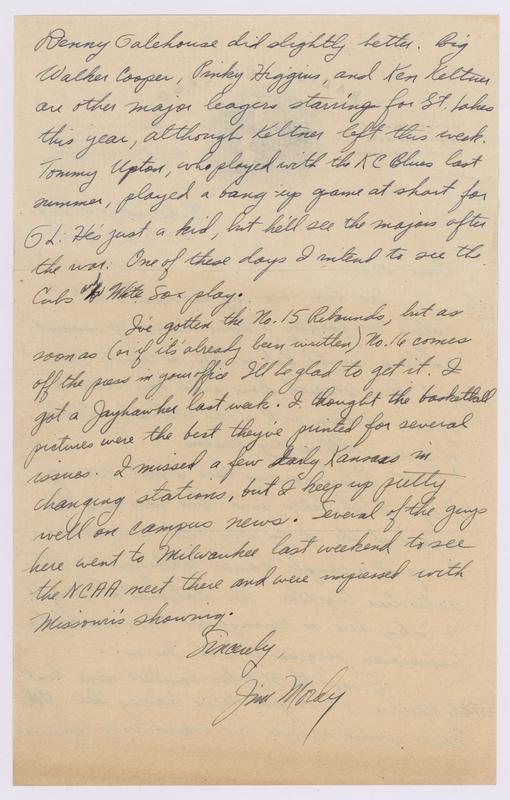 Denny Galehouse did slightly better. Big
Walker Cooper, Pinky Higgins, and Ken Keltner
are other major leagers starring for Gt. Lakes
this year, although Keltner left this week.
Tommy Upton, who played with the KC Blues last
summer, played a bang-up game at short for
GL. He's just a kid, but he'll see the majors after
the war. One of these days I intend to see the
Cubs White Sox play.
I've gotten the No. 15 Rebounds, but as
soon as (or if it's already been written) No. 16 comes
off the press in your office I'll be glad to get it. I
got a Jayhawker last week. I thought the basketball
pictures were the best they've printed for several
issues. I missed a few daily Kansans in
changing stations, but I keep up pretty
well on campus news. Several of the guys
here went to Milwaukee last weekend to see
the NCAA meet there and were impressed with
Missouri's showing.
Sincerely
Jim